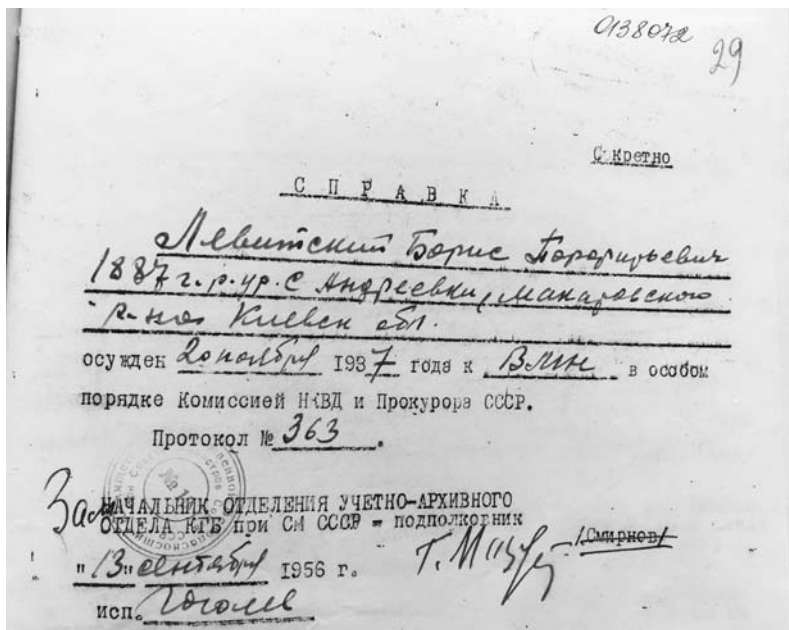 0138072
29
Секретно
СПРАВКА
Левитский Борис Порфирьевич
1887 г.р. ур. с Андреевки, Макаровского
р-на Киевск обл.
осужден 20 ноября 1937 года к ВМН в особом
порядке Комиссией НКВД и Прокурора СССР.
Протокол № 363.
Зам НАЧАЛЬНИК ОТДЕЛЕНИЯ УЧЕТНО-АРХИВНОГО
ОТДЕЛА КГБ при СМ СССР - подполковник
/Смирнов/
"13" сентября 1956 г.
исп. Гоголев